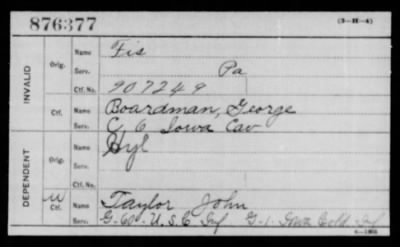 876377 (3—H—4)
INVALID
Orig.
Name Fis
Serv. Pa
Ctf. No. 907249
Ctf.
Name Boardman, George
Serv. C, 6 Iowa Cav
DEPENDENT
Orig.
Name Hyl
Serv.
Ctf. No.
Ctf.
Name Taylor John
Serv. G-60-U.S.C. Inf G-1- Iowa Cold Inf